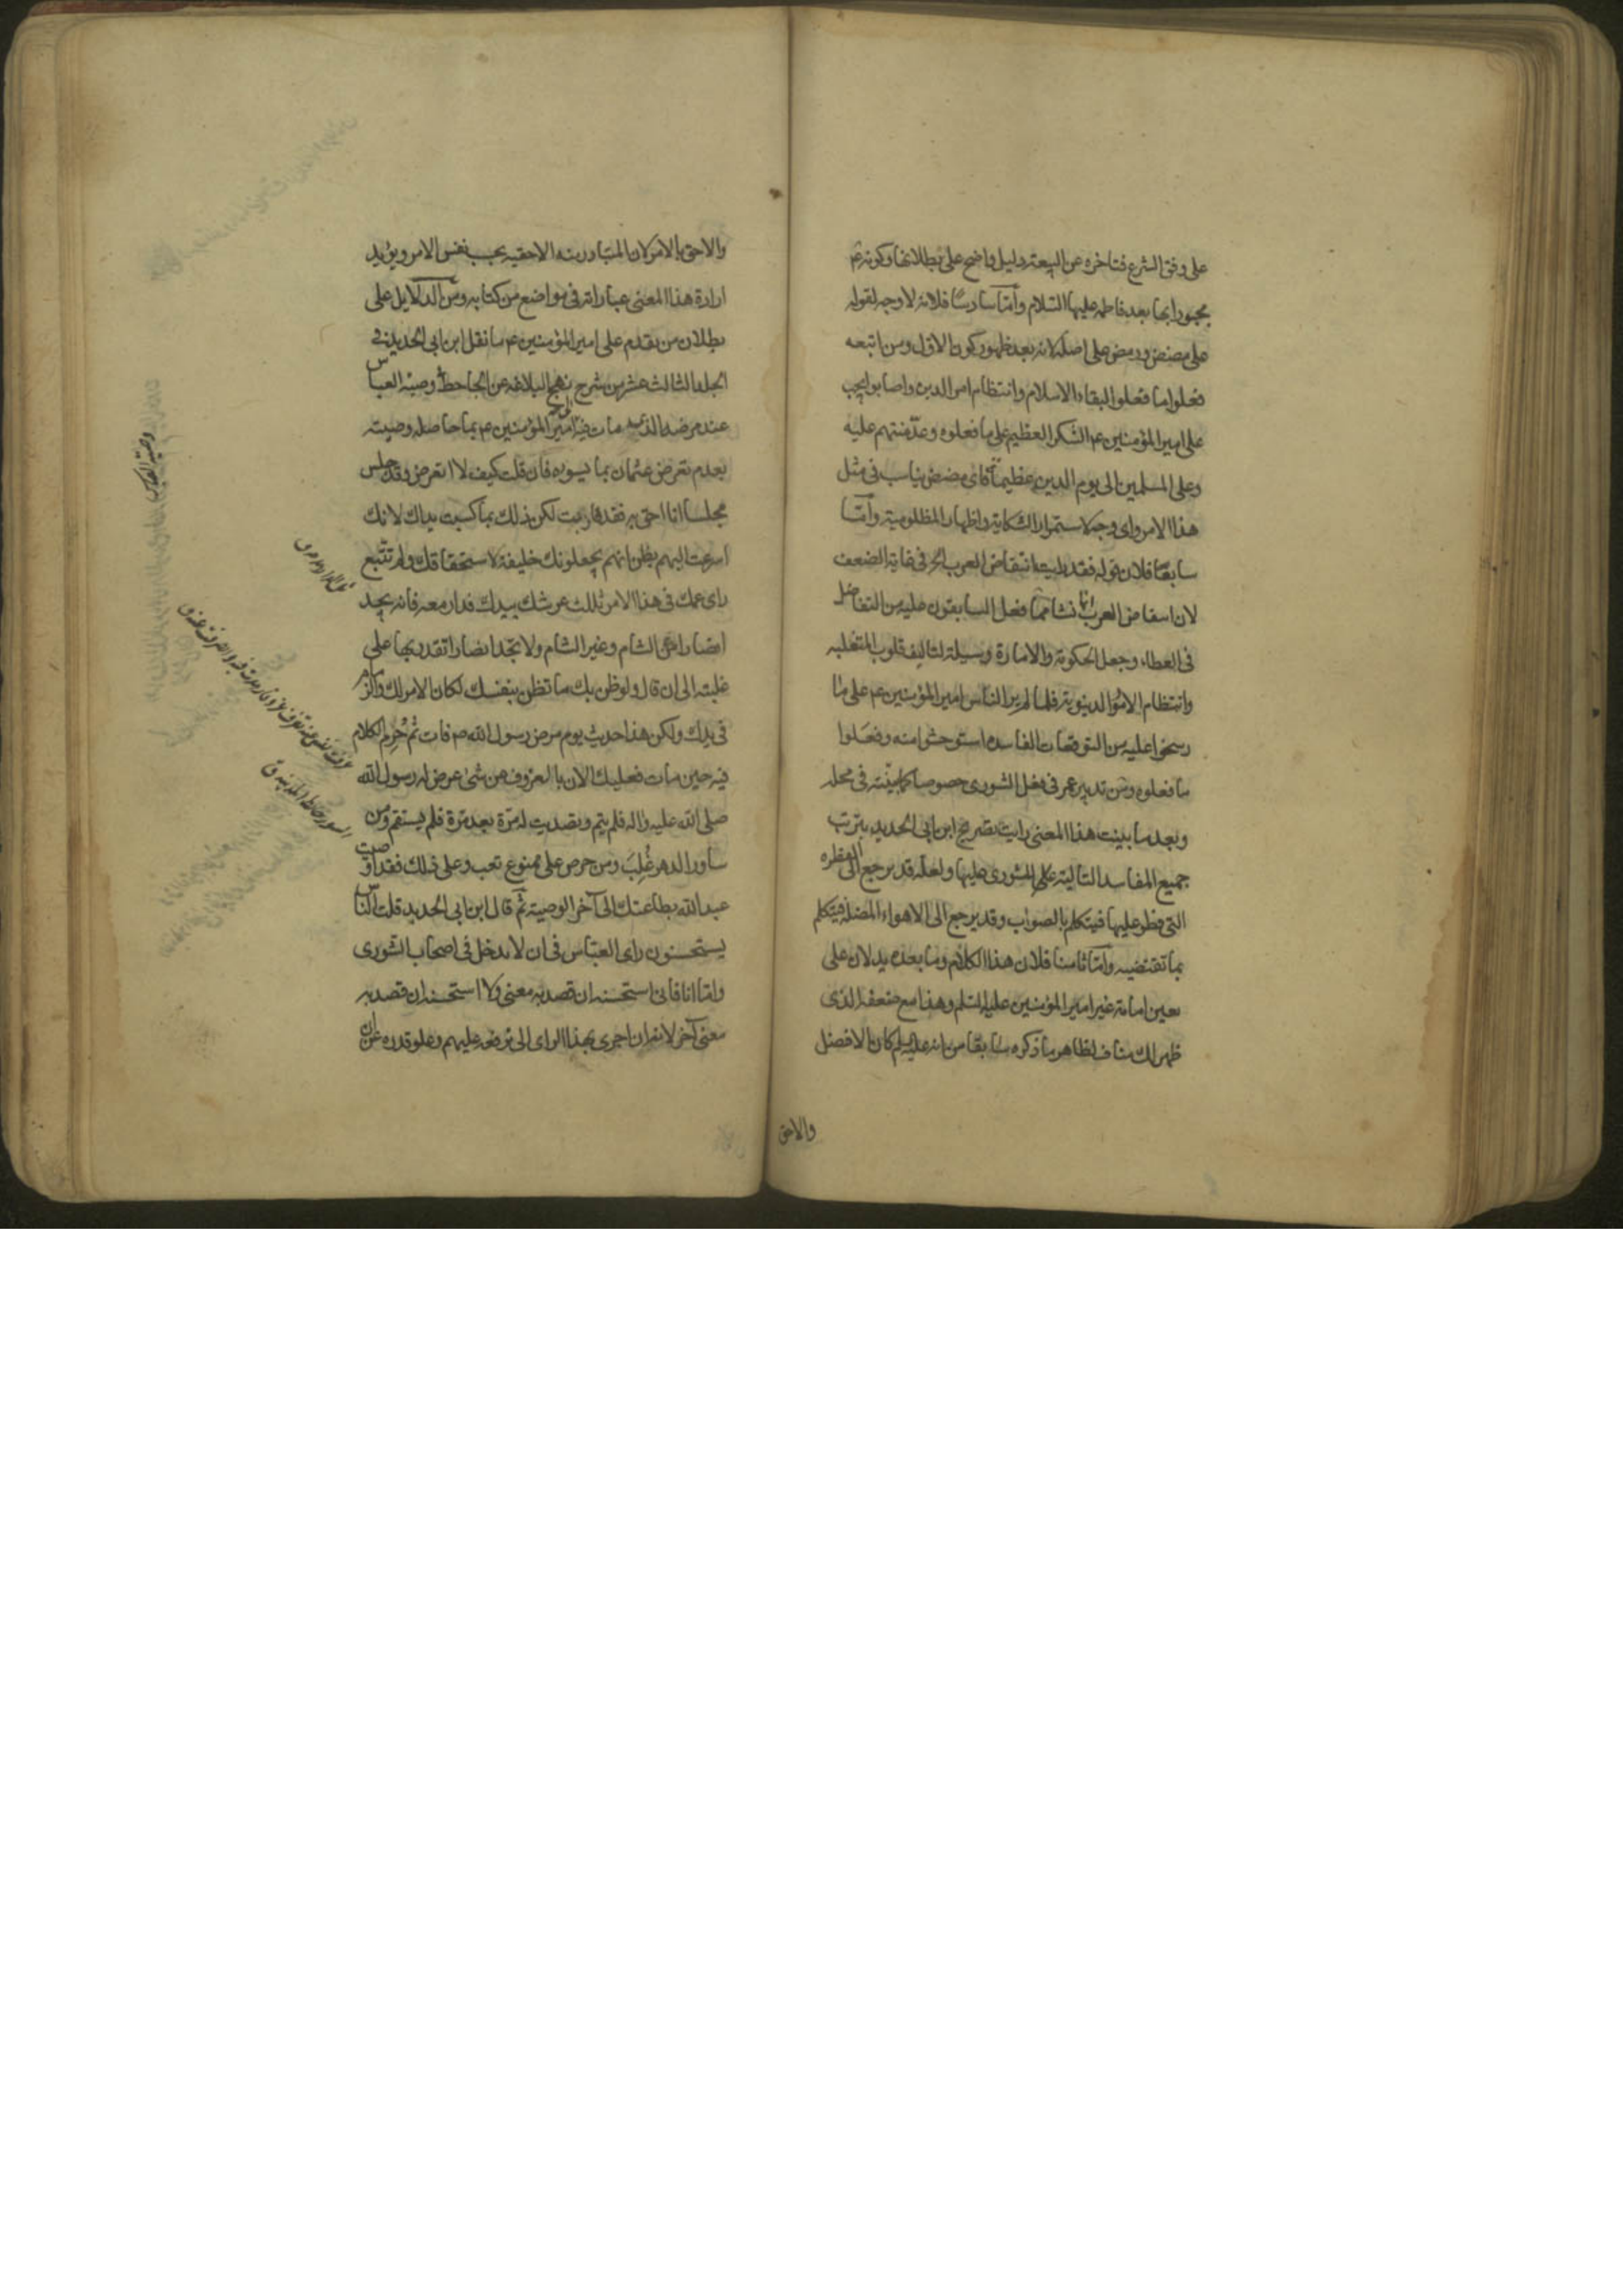 على وفق الشرع فتاخره عن البيعة دليل واضح على بطلانها وكونه ع
مجبورا بها بعد فاطمه عليها السلام وأمّا سادسًا فلانه لا وجه لقوله
على مضض ورمض على اصله لانه بعد ظهور كون الاول ومن اتبعه
فعلوا ما فعلوا لبقاء الاسلام وانتظام امر الدين واصابوا يجب
على امير المؤمنين ع الشكر العظيم على ما فعلوه وعدّ منتهم عليه
وعلى المسلمين الى يوم الدين عظيمة فاى مضض يناسب فى مثل
هذا الامر واى وجه لاستمرار الشكاية واظهار المظلومية وأمّا
سابعًا فلان قوله فقد بليت انتقاض العرب الخ فى غاية الضعف
لان انتقاض العرب انّما نشا ممّا فعل السابقون عليه من التفاضل
فى العطاء وجعل الحكومة والامارة وسيلة لتاليف قلوب المتغلبه
وانتظام الامور الدنيوية فلما لم ير الناس امير المؤمنين ع على ما
رسخوا عليه من التوقعات الفاسده استوحشوا منه وفعلوا
ما فعلوه ومن تدبير عمر فى فعل الشورى خصوصا كما بينته فى محله
وبعد ما بينت هذا المعنى رايت تصريح ابن ابى الحديد بترتب
جميع المفاسد التالية على الشورى عليها ولعله قد يرجع الى الفطره
التى فطر عليها فيتكلم بالصواب وقد يرجع الى الاهواء المضلة فيتكلم
بما تقتضيه وأمّا ثامنا فلان هذا الكلام وما بعده يدلان على
تعين امامة غير امير المؤمنين عليه السلم وهذا مع ضعفه الذى
ظهر لك مناف لظاهر ما ذكره سابقًا من انه عليه السلم كان الافضل
والاحق
والاحق بالامر لان المتبادر منه الاحقيه بحسب نفس الامر ويؤيد
ارادة هذا المعنى عباراته فى مواضع من كتابه ومن الدلايل على
بطلان من تقدم على امير المؤمنين ع ما نقل ابن ابى الحديد فى
الجلد الثالث عشر من شرح نهج البلاغه عن الجاحظ وصيّة العباس
عند مرضه الذى مات فيه الى امير المؤمنين ع بما حاصله وصيته
بعدم تعرض عثمان بما يسوءه فان قلت كيف لا اتعرض وقد جلس
مجلسا انا احق به فقد قاربت لكن ذلك بما كسبت يداك لانك
اسرعت اليهم بظن انهم يجعلونك خليفة لاستحقاقك ولم تتّبع
راى عمك فى هذا الامر
انصارا من الشام وغير الشام ولا تجد انصارا تقدر بها على
غلبته الى ان قال ولو ظن بك ما تظن بنفسك لكان الامر لك والزمام
فى يدك ولكن هذا حديث يوم مرض رسول الله ص فات ثم حُرِم الكلام
فيه حين مات فعليك الان بالعزوف عن شئ عرض له رسول الله
صلى الله عليه واله فلم يتم وتصديت له مرّة بعد مرّة فلم يستقم ومن
ساور الدهر غُلِبَ ومن حرص على ممنوع تعب وعلى ذلك فقد اوصيت
عبد الله بطاعتك الى آخر الوصية ثم قال ابن ابى الحديد قلت الناس
يستحسنون راى العباس فى ان لا يدخل فى اصحاب الشورى
وامّا انا فانى استحسنه ان قصد به معنى ولا استحسنه ان قصد به
معنى آخر لانه ان اجرى بهذا الراى الى ترفعه عليهم وعلو قدره عن ان
وصية العباس